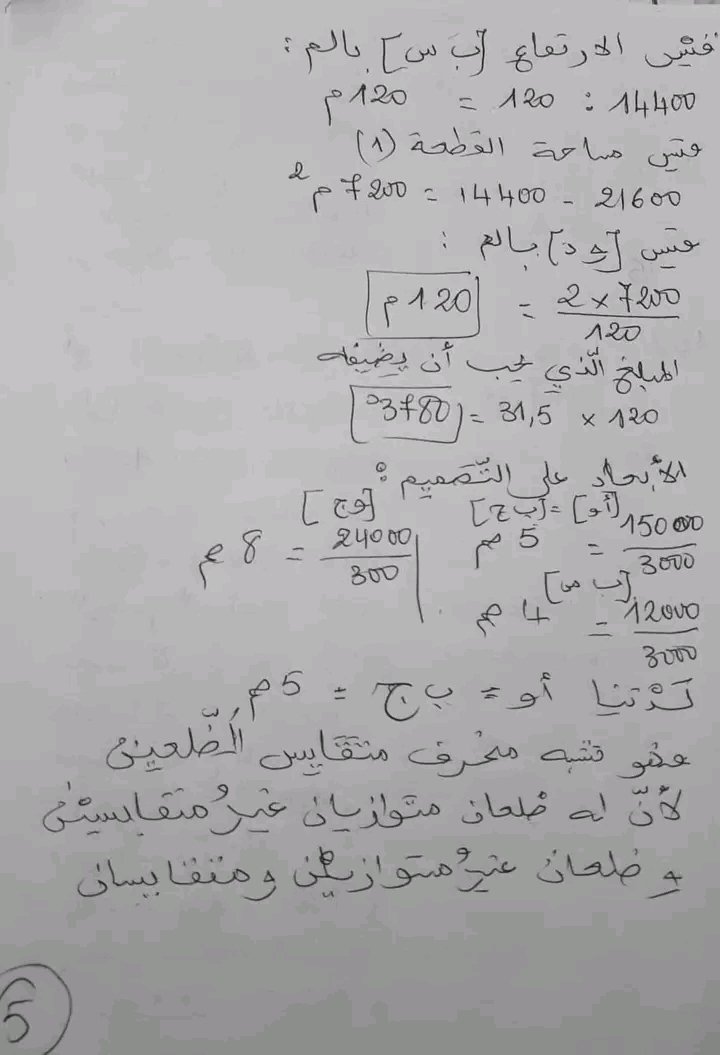 قيس الارتفاع [ب س] بالم :
14400 : 120 = 120م
قيس مساحة القطعة (1)
21600 - 14400 = 7200 م2
قيس [و د] بالم :
2 × 7200 / 120 = 120م
المبلغ الّذي يجب أن يضيفه
120 × 31,5 = 3780د
الأبعاد على التّصميم :
[أو] = [ب ج] [وج]
15000 / 3000 = 5 صم | 24000 / 300 = 8 صم
[ب س]
12000 / 3000 = 4 صم
لدينا أو = ب ج = 5 صم
فهو شبه منحرف متقايس الضّلعين
لأنّ له ضلعان متوازيان غيرُ متقايسين
و ضلعان غيرُ متوازيين ومتقايسان
5